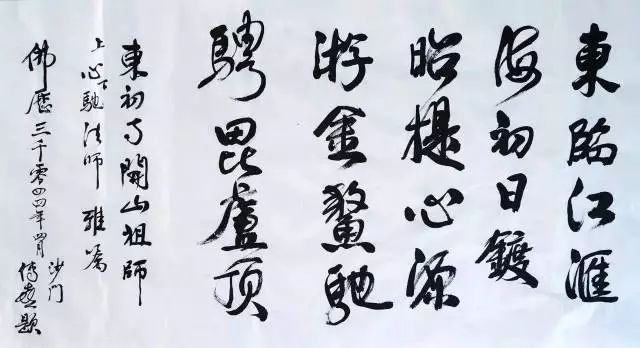 東臨江滙
海初日鍍
昭提心源
游金鰲馳
騁毘盧頂
東初寺開山祖師
上心下馳法師 雅屬
佛歷三千零四四年四月
沙门
傳喜題